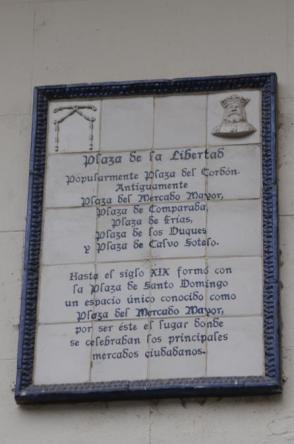 Plaza de la Libertad
Popularmente Plaza del Cordón.
Antiguamente
Plaza del Mercado Mayor,
Plaza de Comparada,
Plaza de Frías,
Plaza de los Duques
y Plaza de Calvo Sotelo.
Hasta el siglo XIX formó con
la Plaza de Santo Domingo
un espacio único conocido como
Plaza del Mercado Mayor,
por ser éste el lugar donde
se celebraban los principales
mercados ciudadanos.